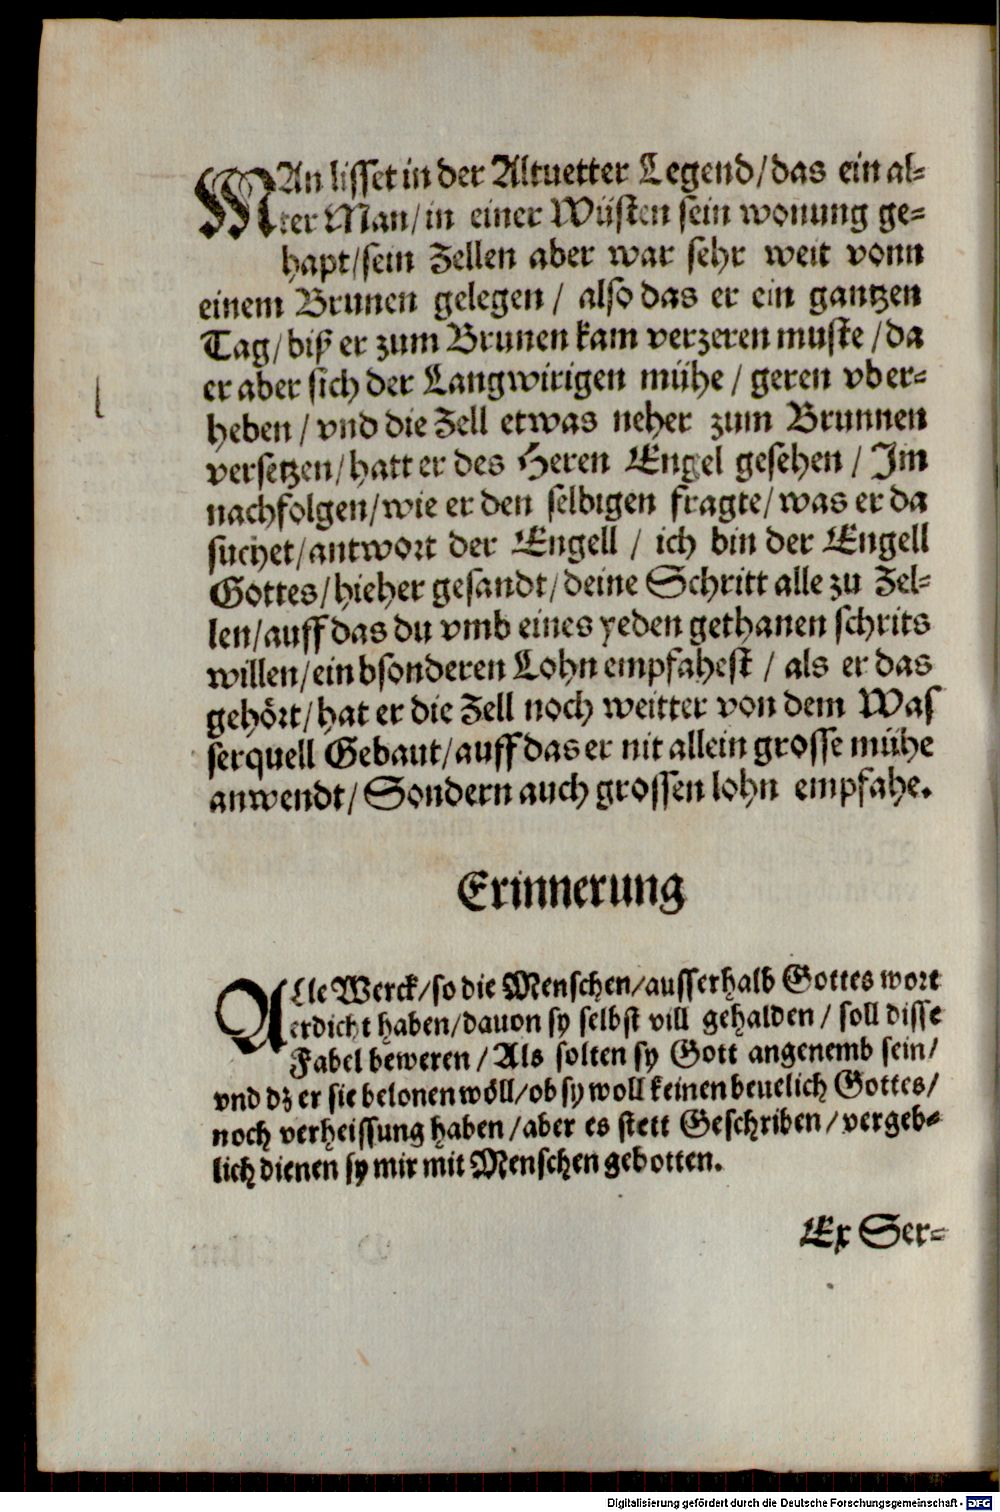 MAn lisset in der Altuetter Legend/das ein al-
ter Man/in einer Wüsten sein wonung ge-
hapt/sein Zellen aber war sehr weit vonn
einem Brunen gelegen/ also das er ein gantzen
Tag/biß er zum Brunen kam verzeren muste/da
er aber sich der Langwirigen mühe/ geren vber-
heben/ vnd die Zell etwas neher zum Brunnen
versetzen/hatt er des Heren Engel gesehen/ Im
nachfolgen/wie er den selbigen fragte/was er da
suchet/antwort der Engell/ ich bin der Engell
Gottes/hieher gesandt/deine Schritt alle zu Zel-
len/auff das du vmb eines yeden gethanen schrits
willen/ein bsonderen Lohn empfahest/ als er das
gehört/hat er die Zell noch weitter von dem Was
serquell Gebaut/auff das er nit allein grosse mühe
anwendt/Sondern auch grossen lohn empfahe.
Erinnerung
ALle Werck/so die Menschen/ausserhalb Gottes wort
erdicht haben/dauon sy selbst vill gehalden/ soll disse
Fabel beweren/Als solten sy Gott angenemb sein/
vnd dz er sie belonen wöll/ob sy woll keinen beuelich Gottes/
noch verheissung haben/aber es stett Geschriben/vergeb-
lich dienen sy mir mit Menschen gebotten.
Ex Ser-
Digitalisierung gefördert durch die Deutsche Forschungsgemeinschaft - DFG